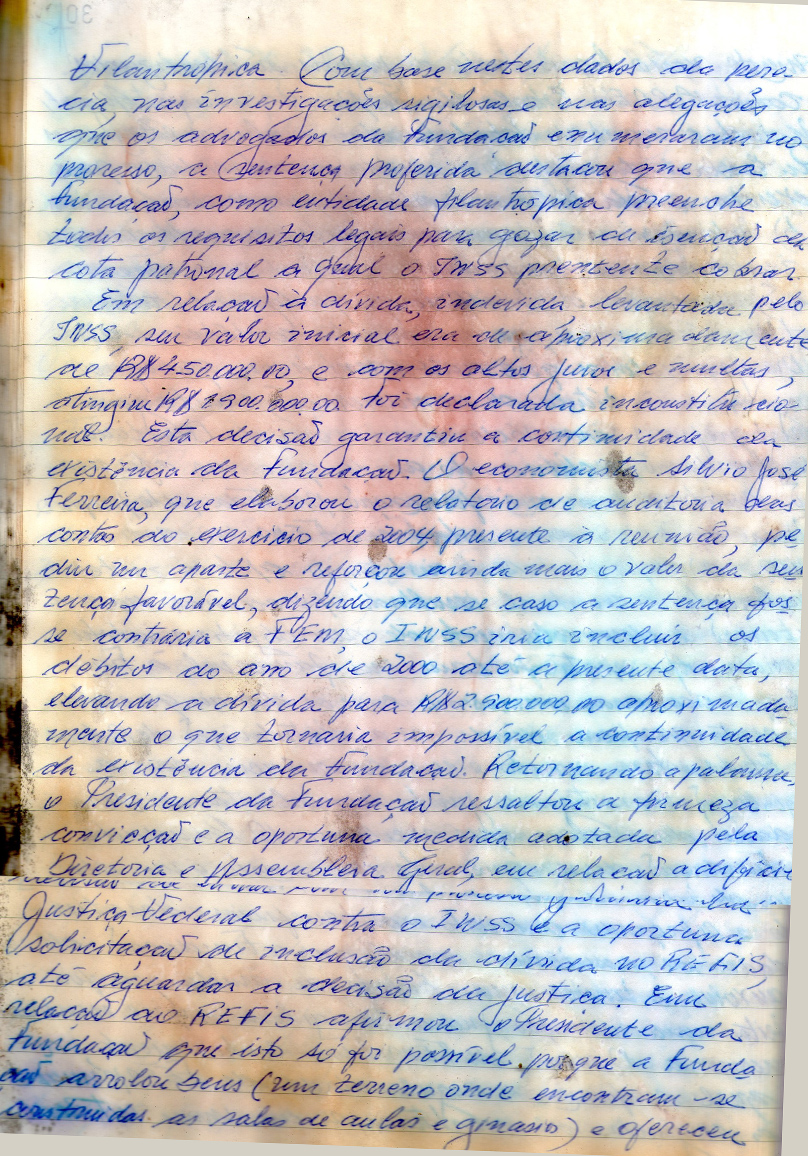 Filantrópica. Com base nestes dados da perí-
cia, nas investigações sigilosas e nas alegações
que os advogados da Fundação enumeraram no
processo, a sentença proferida destacou que a
Fundação, como entidade filantrópica preenche
todos os requisitos legais para gozar de isenção da
cota patronal a qual o INSS pretente cobrar.
Em relação à dívida, indevida, levantada pelo
INSS, seu valor inicial era de aproximadamente
de R$ 450.000,00, e com os altos juros e multas,
atingiu R$ 1.900.000,00 foi declarada inconstitucio-
nal. Esta decisão garantiu a continuidade da
existência da Fundação. O economista Silvio José
Ferreira, que elaborou o relatorio de auditoria das
contas do exercício de 2004, presente à reunião, pe
diu um aparte e reforçou ainda mais o valor da sen
tença favorável, dizendo que se caso a sentença fos
se contrária a FEM, o INSS iria incluir os
débitos do ano de 2000 até a presente data,
elevando a dívida para R$ 2.900.000,00 aproximada
mente o que tornaria impossível a continuidade
da existência da Fundação. Retornando a palavra,
o Presidente da Fundação ressaltou a firmeza
convicção e a oportuna medida adotada pela
Diretoria e Assembleia Geral, em relação a difícil
Justiça Federal contra o INSS e a oportuna
solicitação de inclusão da dívida no REFIS,
até aguardar a decisão da justiça. Em
relação ao REFIS afirmou o Presidente da
Fundação que isto só foi possível porque a Funda
ção arrolou bens (um terreno onde encontram-se
construidas as salas de aulas e ginasio) e ofereceu